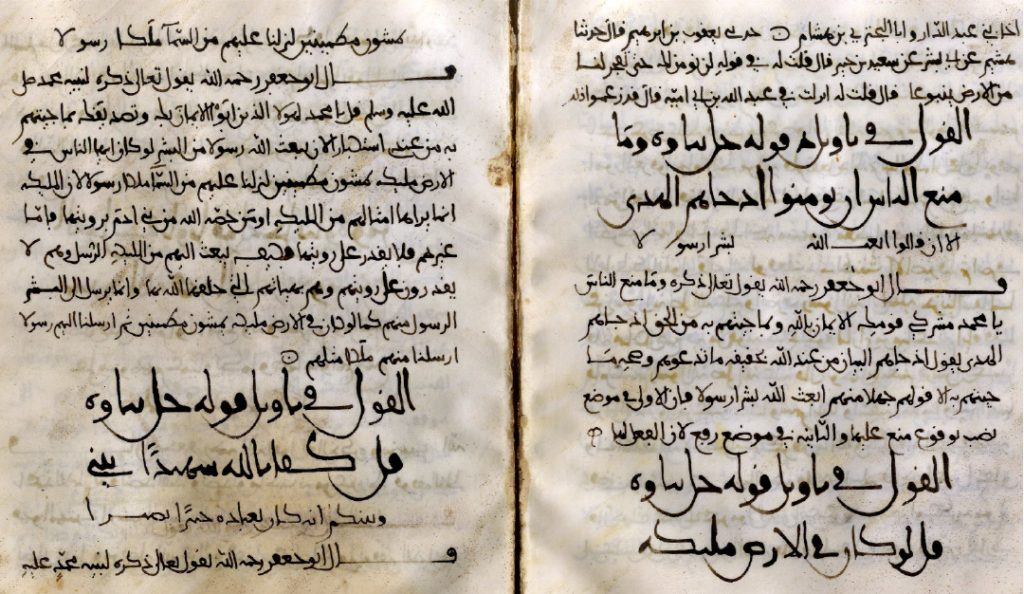 اخا بني عبد الدار وابا البختري بن هشام ۞ حدثني يعقوب بن ابرهيم قال حدثنا
هشيم عن ابي بشر عن سعيد بن جبير قال قلت له في قوله لن نومن لك حتى تفجر لنا
من الارض ينبوعا قال قلت له نزلت في عبد الله بن ابي اميه قال قد زعموا ذلك
القول في تاويل قوله جل ثناوه وما
منع الناس ان يومنوا اذ جاهم الهدى
الا ان قالوا ابعث الله بشرا رسولا
قال ابو جعفر رحمه الله يقول تعالى ذكره وما منع الناس
يا محمد مشركي قومك الايمان بالله وبما جيتهم به من الحق اذ جاهم
الهدى يقول اذ جاهم البيان من عند الله بحقيقه ما تدعوهم وصحه ما
جيتهم به الا قولهم جهلا منهم ابعث الله بشرا رسولا فان الاولى في موضع
نصب بوقوع منع عليها والثانيه في موضع رفع لان الفعل لها
القول في تاويل قوله جل ثناوه
قل لو كان في الارض مليكه
يمشون مطمينين لنزلنا عليهم من السما ملكا رسولا
قال ابو جعفر رحمه الله يقول تعالى ذكره لنبيه محمد صلى
الله عليه وسلم قل يا محمد لهولا الذين ابوا الايمان بك وتصديقك فيما جيتهم
به من عندي استنكارا لان يبعث الله رسولا من البشر لو كان ايها الناس في
الارض مليكه يمشون مطمينين لنزلنا عليهم من السما ملكا رسولا لان المليكه
انما يراها امثالهم من المليكه ومن خصه الله من بني ادم برويتها فاما
غيرهم فلا يقدر على رويتها فكيف يبعث اليهم من المليكه الرسل وهم لا
يقدرون على رويتهم وهم بهياتهم التي خلقهم الله بها وانما يرسل الى البشر
الرسول منهم كما لو كان في الارض مليكه يمشون مطمينين ثم ارسلنا اليهم رسولا
ارسلنا منهم ملكا مثلهم ۞
القول في تاويل قوله جل ثناوه
قل كفى بالله شهيدا بيني
وبينكم انه كان بعباده خبيرا بصيرا
قال ابو جعفر رحمه الله يقول تعالى ذكره لنبيه محمد عليه